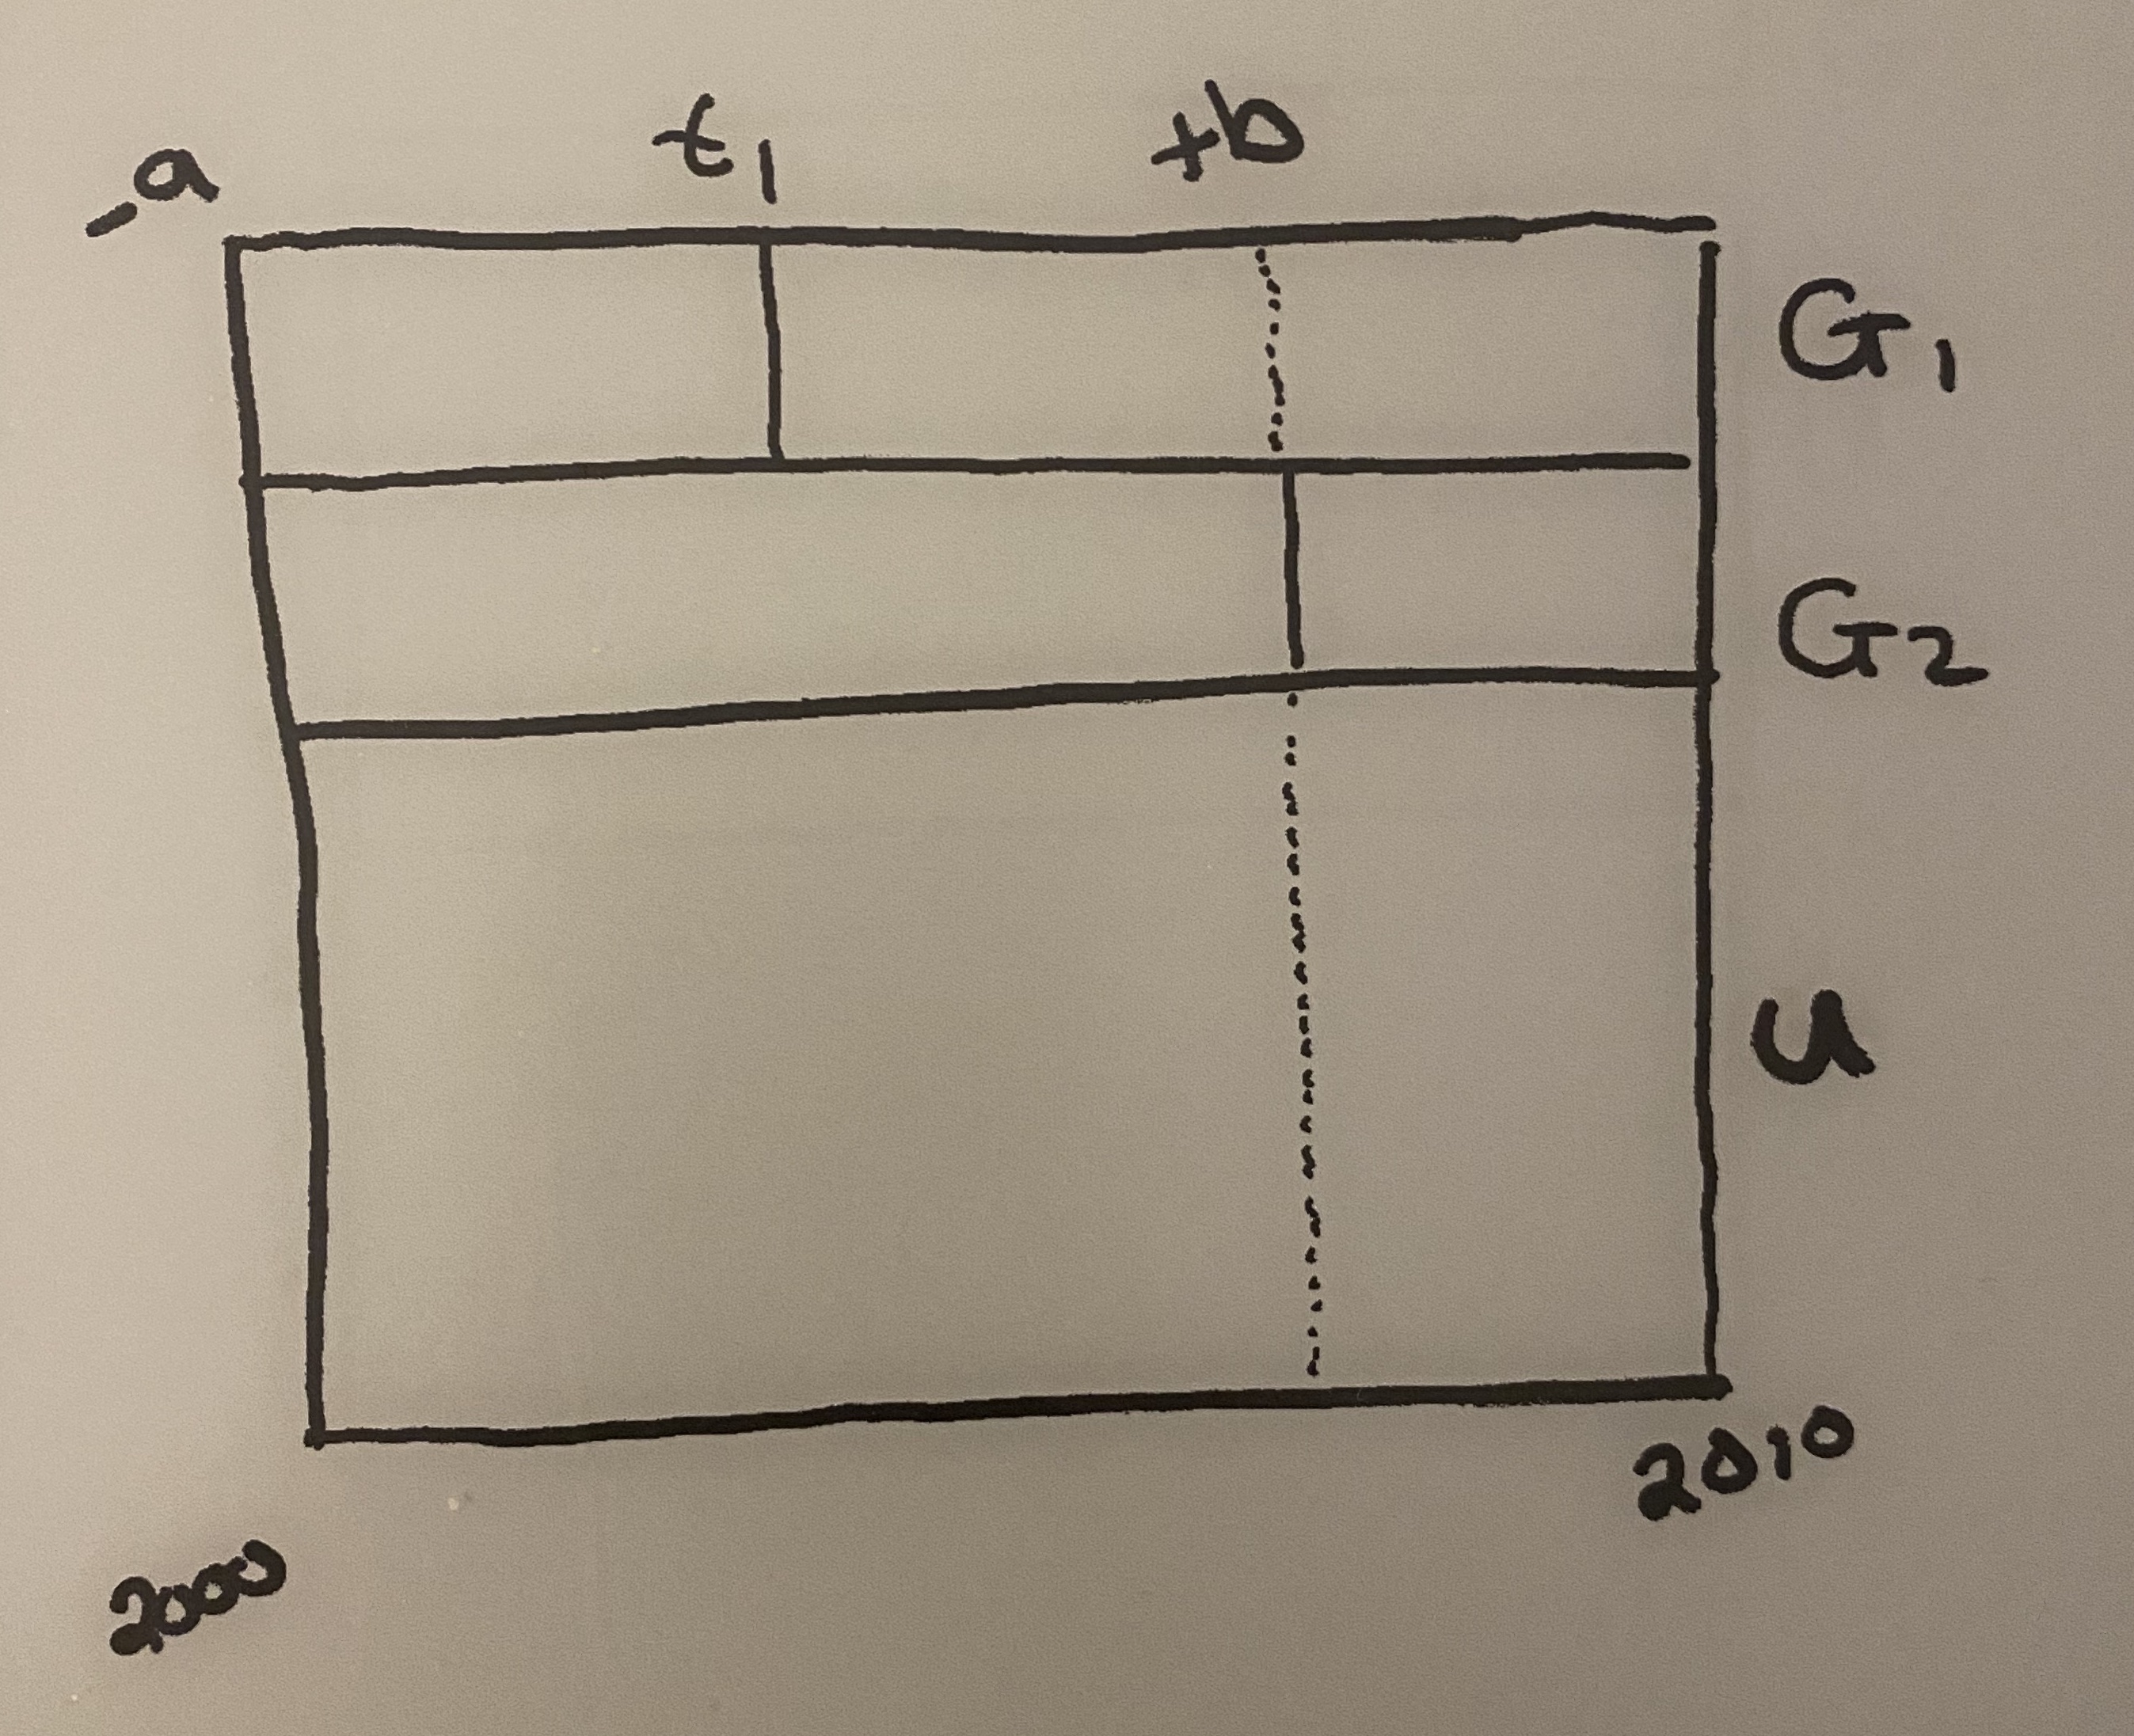 -a t₁ +b
G₁
G₂
U
2000 2010